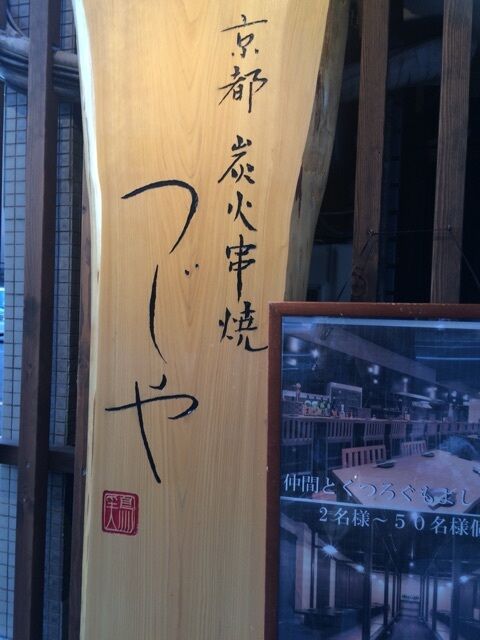 京都 炭火串焼
つじや
仲間とくつろぐもよし
2名様～50名様個